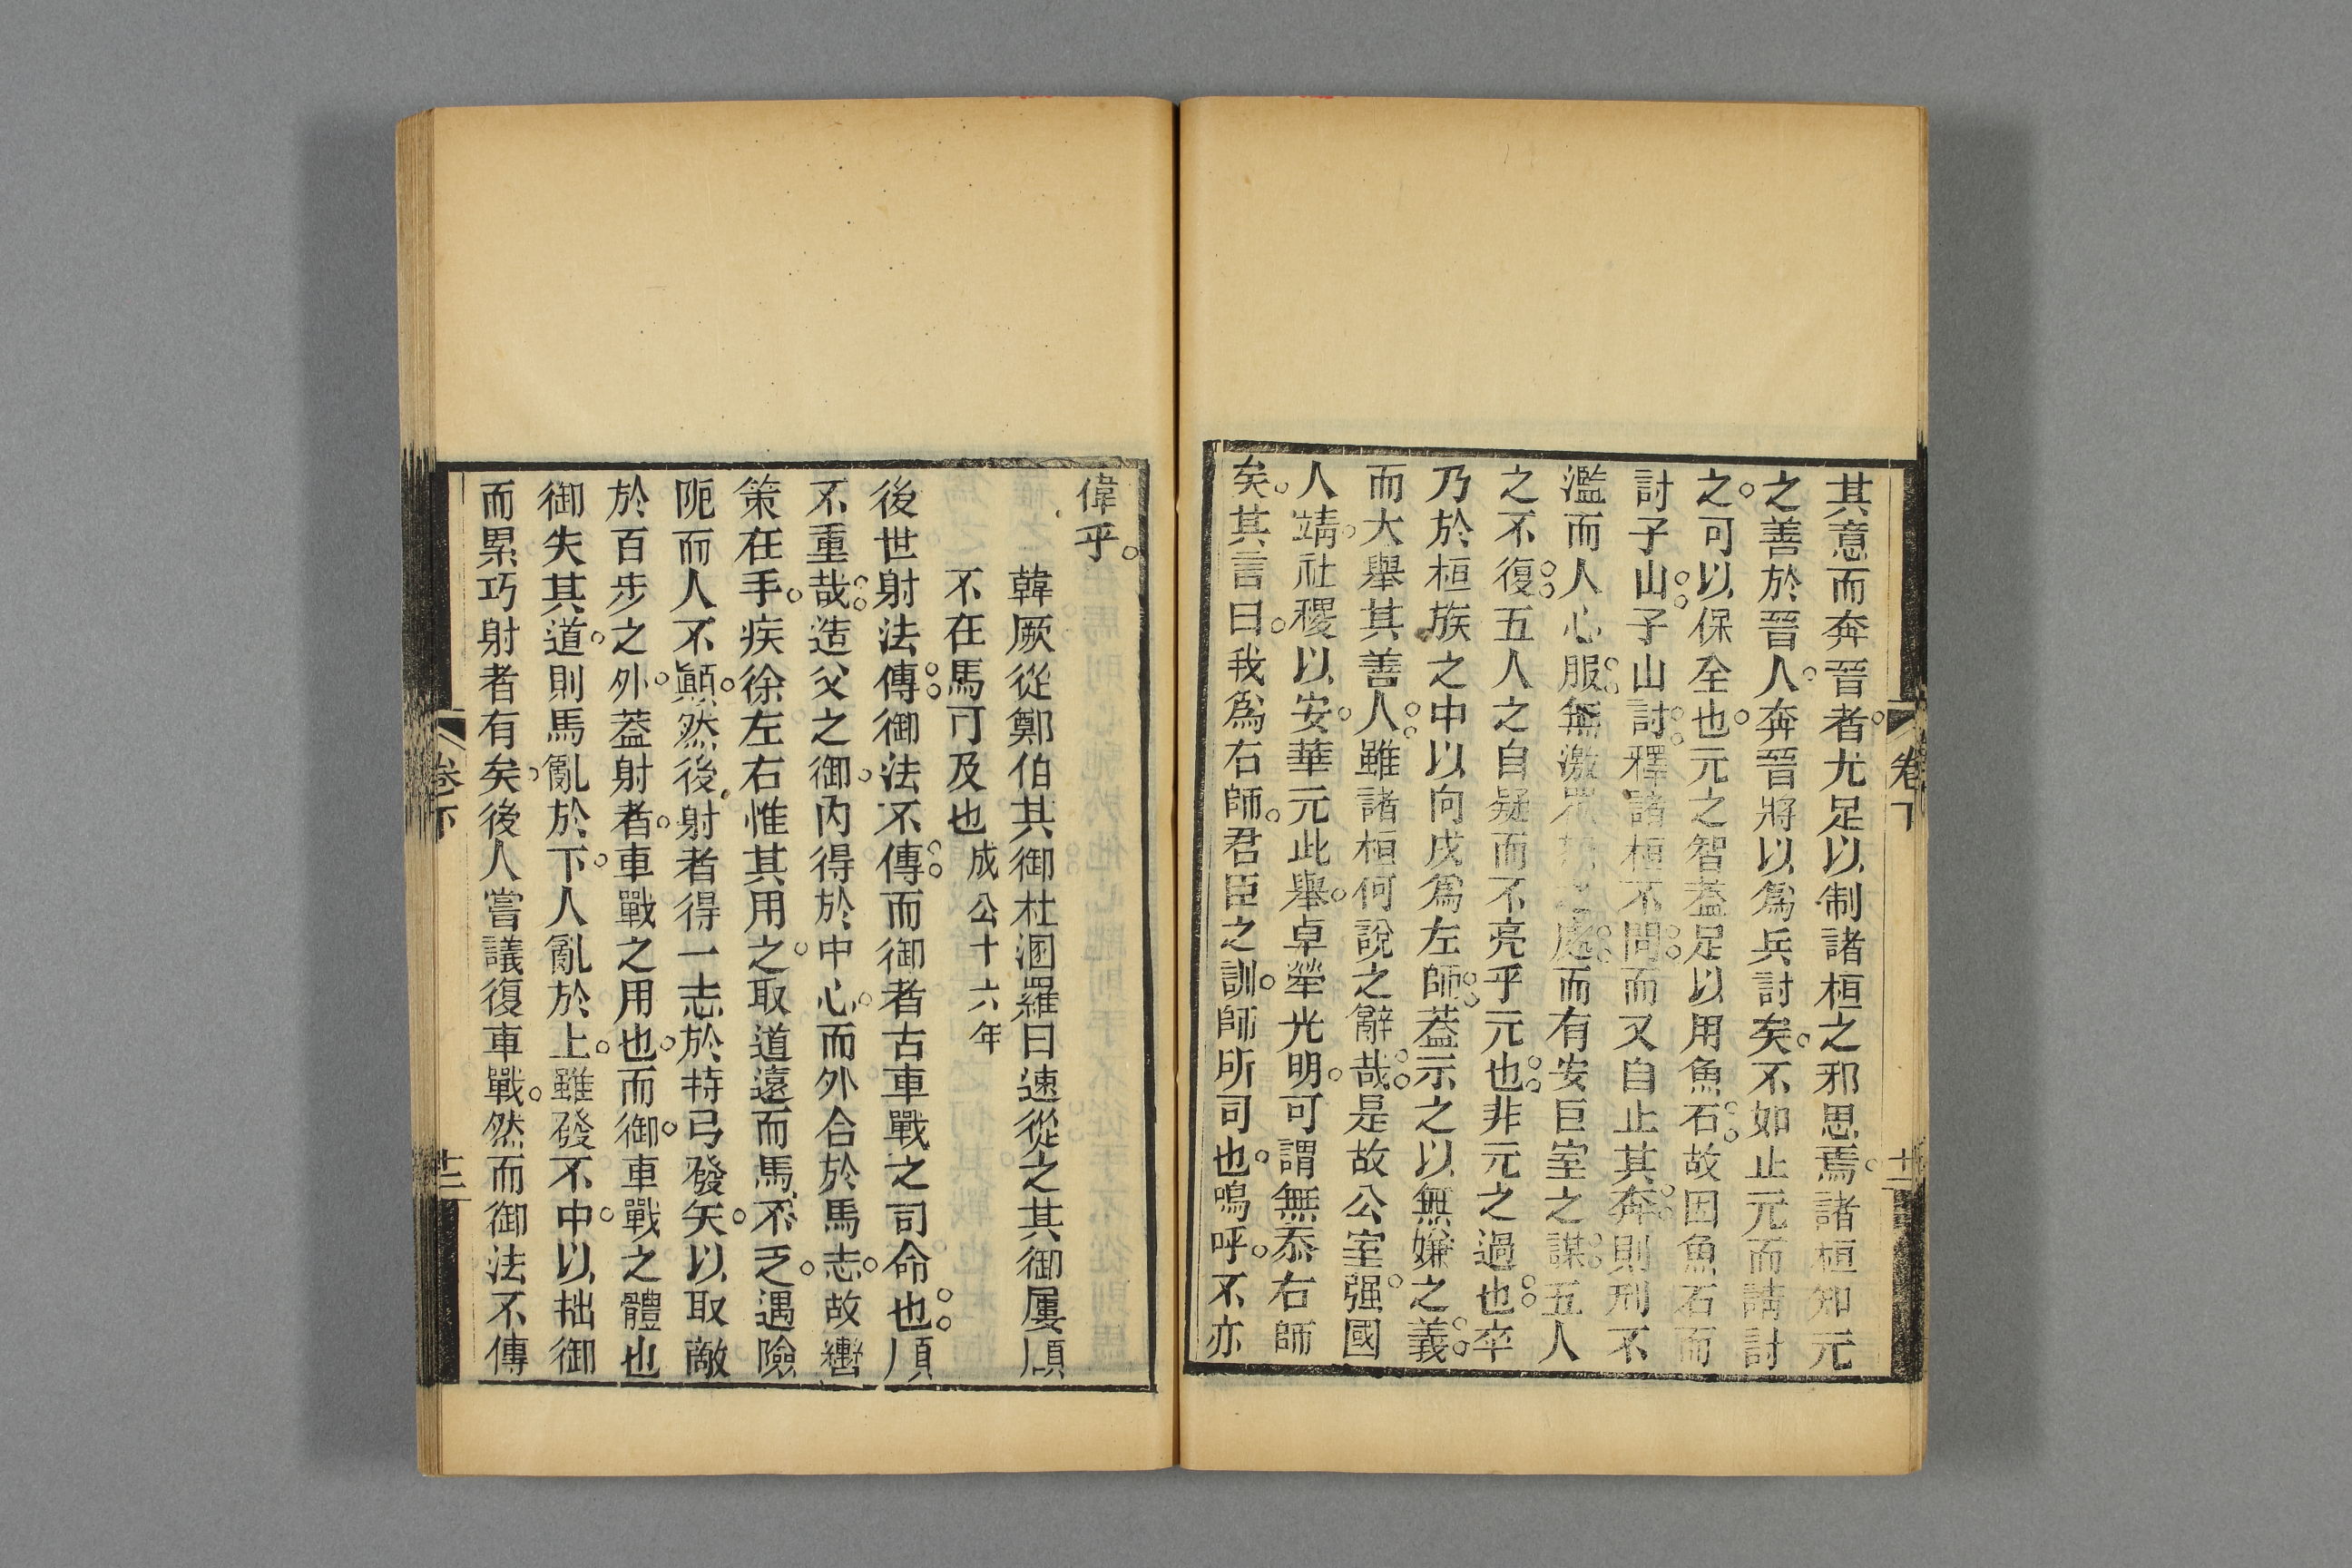 其意而奔晉者尤足以制諸桓之邪思焉諸桓知元
之善於晉人奔晉將以爲兵討矣不如止元而請討
之可以保全也元之智葢足以用魚石故因魚石而
討子山子山討釋諸桓不問而又自止其奔則刑不
濫而人心服無激眾之處而有安巨室之謀五人
之不復五人之自疑而不亮乎元也非元之過也卒
乃於桓族之中以向戌爲左師葢示之以無嫌之義
而大舉其善人雖諸桓何說之辭哉是故公室强國
人靖社稷以安華元此舉卓犖光明可謂無忝右師
矣其言曰我爲右師君臣之訓師所司也嗚呼不亦
卷下
十二
偉乎
韓厥從鄭伯其御杜溷羅曰速從之其御屢顧
不在馬可及也成公十六年
後世射法傳御法不傳而御者古車戰之司命也顧
不重哉造父之御內得於中心而外合於馬志故轡
策在手疾徐左右惟其用之取道遠而馬不乏遇險
阨而人不顚然後射者得一志於持弓發矢以取敵
於百步之外葢射者車戰之用也而御車戰之體也
御失其道則馬亂於下人亂於上雖發不中以拙御
而累巧射者有矣後人嘗議復車戰然而御法不傳
卷下
十二